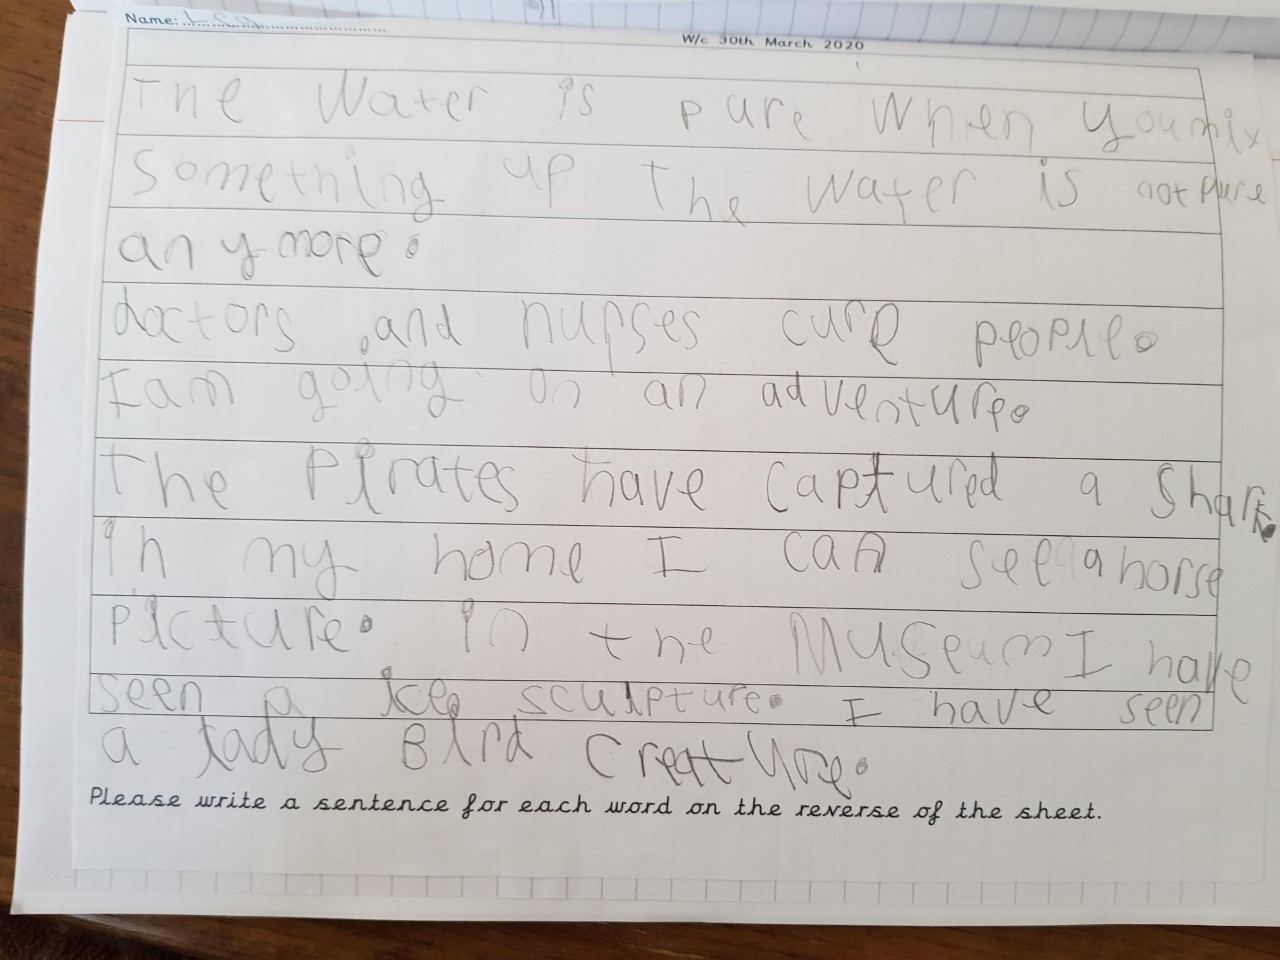 Name:
W/c 30th March 2020
The Water is pure When you mix
something up The Water is not pure
any more.
doctors and nurses cure people.
I am going on an adventure.
the Pirates have captured a Shark.
in my home I can see a horse
Picture. in the Museum I have
seen a ice sculpture. I have seen
a lady Bird Creature.
Please write a sentence for each word on the reverse of the sheet.